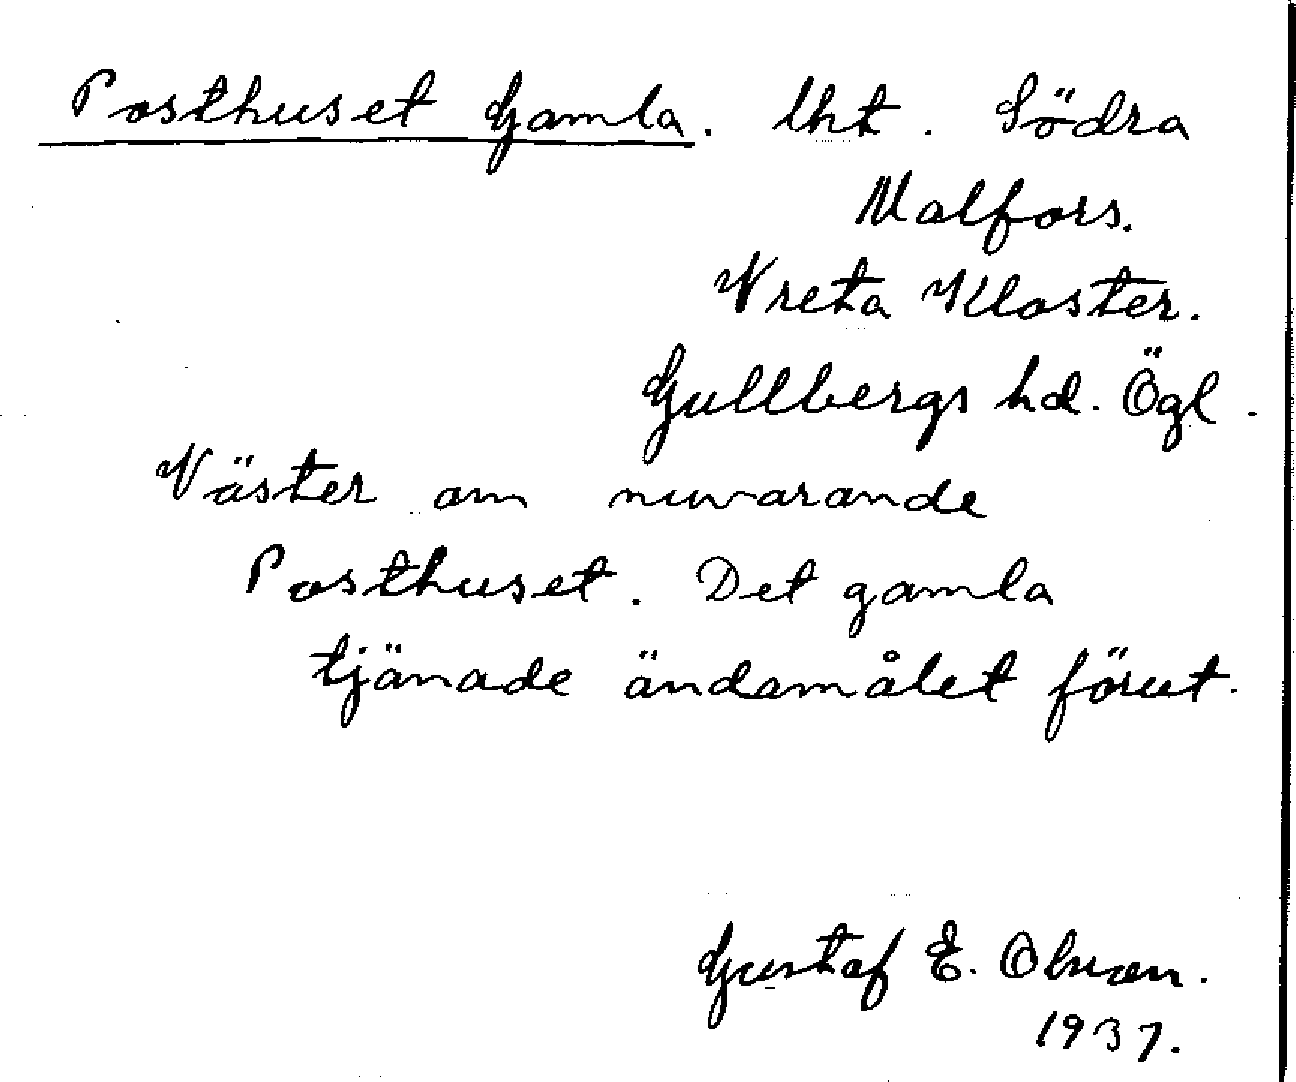 Posthuset Gamla. lht. Södra
Malfors.
Vreta Kloster.
Gullbergs hd. Ögl.
Väster om nuvarande
Posthuset. Det gamla
tjänade ändamålet förut.
Gustaf E. Olsson.
1937.